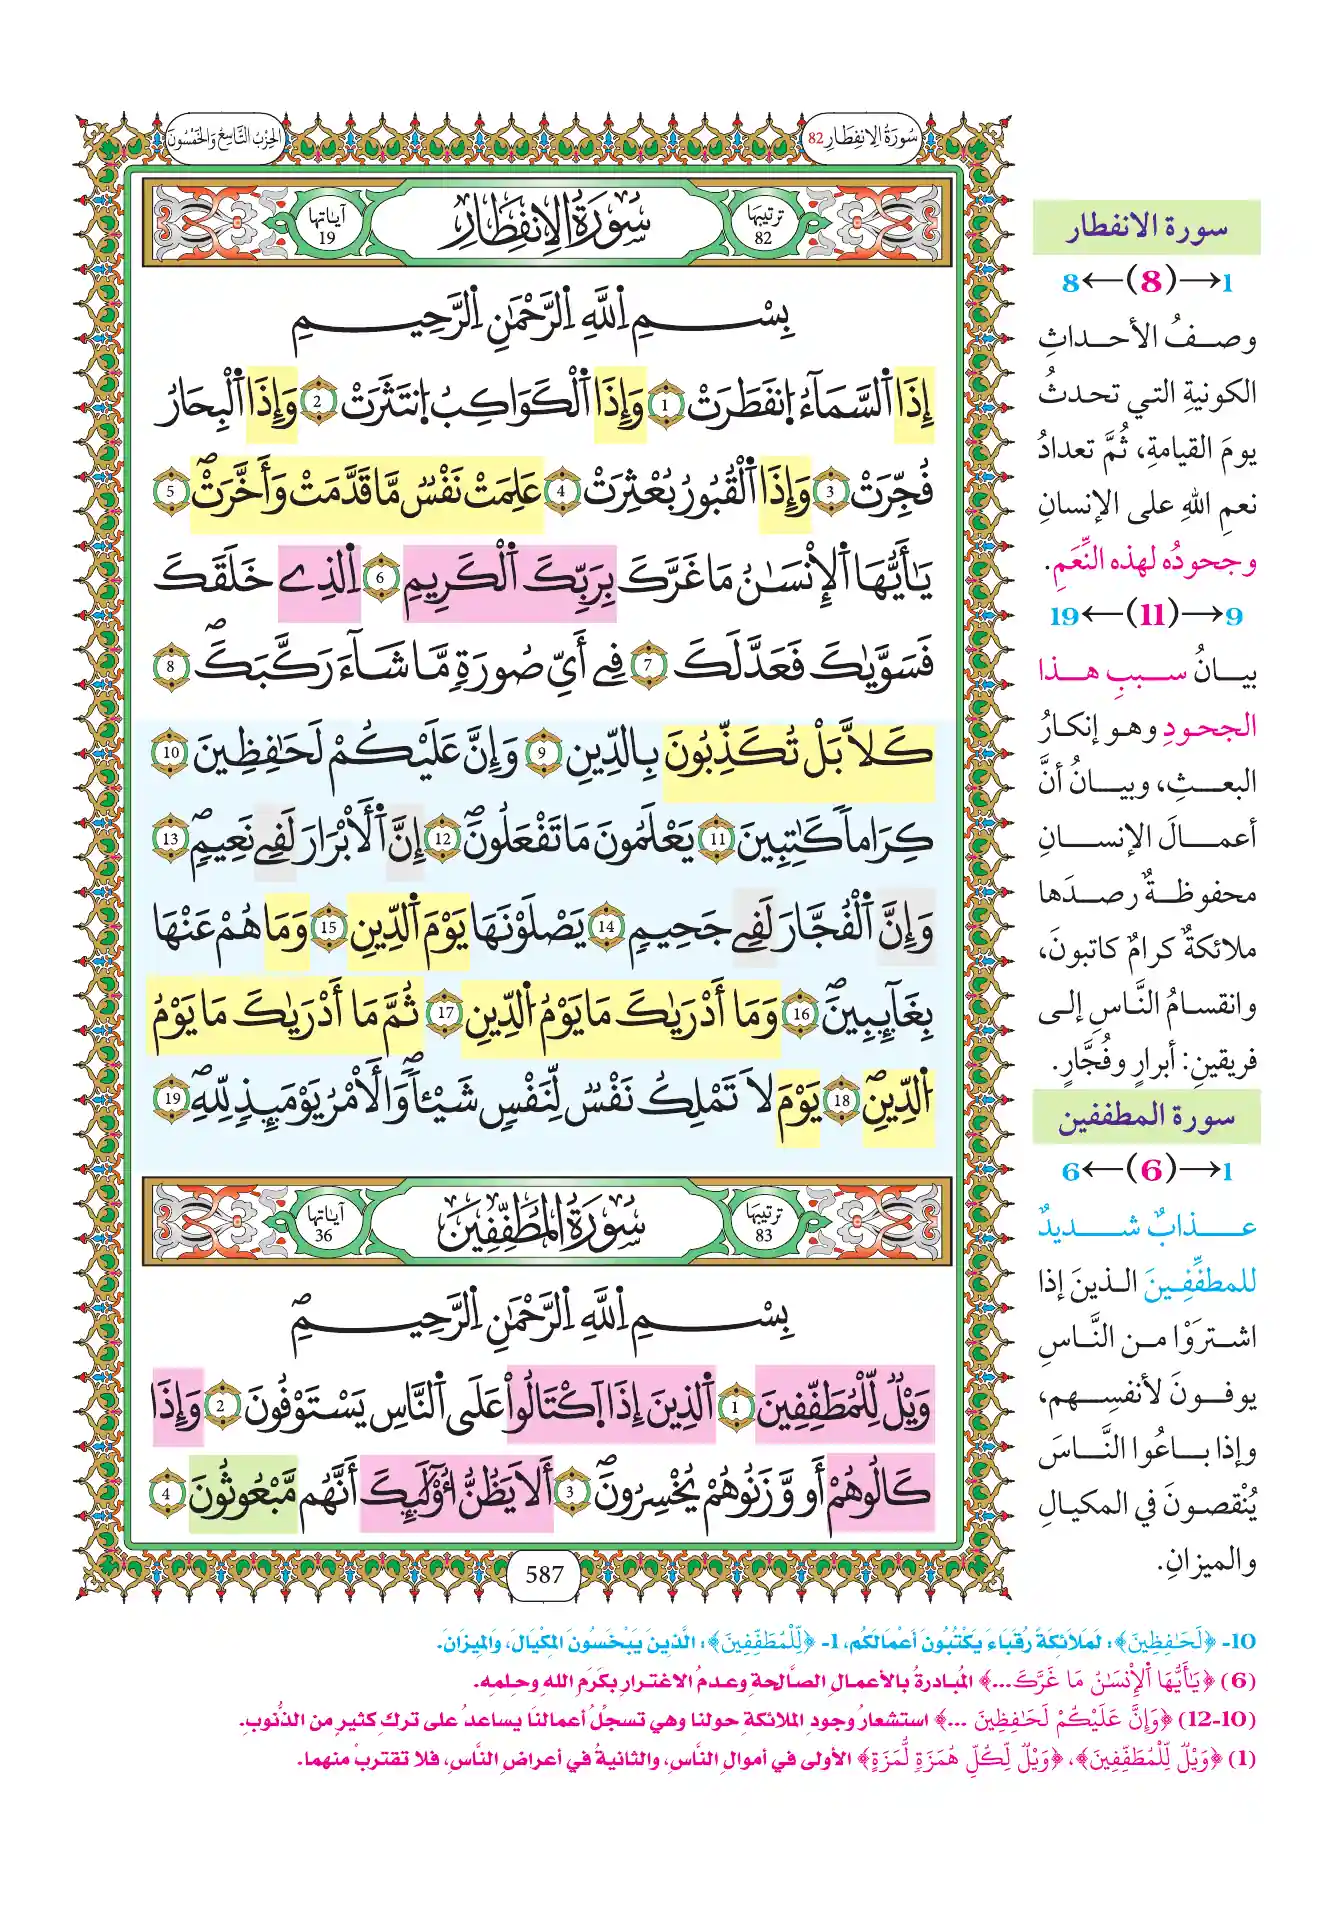 سُورَةُ الِانفِطَارِ 82
الحِزْبُ التَّاسِعُ وَالخَمْسُونَ
ترتيبها 82
سُورَةُ الِانفِطَارِ
آياتها 19
بِسْمِ اِللَّهِ اِلرَّحْمَٰنِ اِلرَّحِيمِ
إِذَا اَ۬لسَّمَآءُ اُ۪نفَطَرَتْ 1 وَإِذَا اَ۬لْكَوَاكِبُ اُ۪نتَثَرَتْ 2 وَإِذَا اَ۬لْبِحَارُ
فُجِّرَتْ 3 وَإِذَا اَ۬لْقُبُورُ بُعْثِرَتْ 4 عَلِمَتْ نَفْسٌ مَّا قَدَّمَتْ وَأَخَّرَتْۖ 5
يَٰأَيُّهَا اَ۬لْإِنسَٰنُ مَا غَرَّكَ بِرَبِّكَ اَ۬لْكَرِيمِ 6 اِ۬لذِے خَلَقَكَ
فَسَوَّيٰكَ فَعَدَّلَكَ 7 فِے أَيِّ صُورَةٍ مَّا شَآءَ رَكَّبَكَۖ 8
كَلاَّ بَلْ تُكَذِّبُونَ بِالدِّينِ 9 وَإِنَّ عَلَيْكُمْ لَحَٰفِظِينَ 10
كِرَاماٗ كَٰتِبِينَ 11 يَعْلَمُونَ مَا تَفْعَلُونَۖ 12 إِنَّ اَ۬لَابْرَارَ لَفِے نَعِيمٖۖ 13
وَإِنَّ اَ۬لْفُجَّارَ لَفِے جَحِيمٖ 14 يَصْلَوْنَهَا يَوْمَ اَ۬لدِّينِ 15 وَمَا هُمْ عَنْهَا
بِغَآئِبِينَۖ 16 وَمَا أَدْرَيٰكَ مَا يَوْمُ اُ۬لدِّينِ 17 ثُمَّ مَا أَدْرَيٰكَ مَا يَوْمُ
اُ۬لدِّينِۖ 18 يَوْمَ لَا تَمْلِكُ نَفْسٌ لِّنَفْسٍ شَيْـٔاٗۖ وَالَامْرُ يَوْمَئِذٍ لِّلهِۖ 19
ترتيبها 83
سُورَةُ المُطَفِّفِينَ
آياتها 36
بِسْمِ اِللَّهِ اِلرَّحْمَٰنِ اِلرَّحِيمِۖ
وَيْلٌ لِّلْمُطَفِّفِينَ 1 اَ۬لذِينَ إِذَا اَ۪كْتَالُواْ عَلَى اَ۬لنَّاسِ يَسْتَوْفُونَ 2 وَإِذَا
كَالُوهُمْ أَو وَّزَنُوهُمْ يُخْسِرُونَۖ 3 أَلَا يَظُنُّ أُوْلَٰٓئِكَ أَنَّهُم مَّبْعُوثُونَ 4
587
سورة الانفطار
1→(8)←8
وصفُ الأحداثِ
الكونيةِ التي تحدثُ
يومَ القيامةِ، ثُمَّ تعدادُ
نعمِ اللهِ على الإنسانِ
وجحودُه لهذه النِّعَمِ.
9→(11)←19
بيانُ سببِ هذا
الجحودِ وهو إنكارُ
البعثِ، وبيانُ أنَّ
أعمالَ الإنسانِ
محفوظةٌ رصدَها
ملائكةٌ كرامٌ كاتبونَ،
وانقسامُ النَّاسِ إلى
فريقينِ: أبرارٍ وفُجَّارٍ.
سورة المطففين
1→(6)←6
عذابٌ شديدٌ
للمطفِّفِينَ الذينَ إذا
اشتروْا من النَّاسِ
يوفونَ لأنفسِهم،
وإذا باعُوا النَّاسَ
يُنْقصونَ في المكيالِ
والميزانِ.
10- ﴿لَحَٰفِظِينَ﴾: لَمَلَائِكَةً رُقَبَاءَ يَكْتُبُونَ أَعْمَالَكُم، 1- ﴿لِّلْمُطَفِّفِينَ﴾: الَّذِينَ يَبْخَسُونَ المِكْيَالَ، وَالمِيزَانَ.
(6) ﴿يَٰأَيُّهَا اَ۬لْإِنسَٰنُ مَا غَرَّكَ...﴾ المُبادرةُ بالأعمالِ الصَّالحةِ وعدمُ الاغترارِ بكَرَمِ اللهِ وحِلمِه.
(10-12) ﴿وَإِنَّ عَلَيْكُمْ لَحَٰفِظِينَ ...﴾ استشعارُ وجودِ الملائكةِ حولنا وهي تسجلُ أعمالنا يساعدُ على تركِ كثيرٍ من الذُّنوبِ.
(1) ﴿وَيْلٌ لِّلْمُطَفِّفِينَ﴾، ﴿وَيْلٌ لِّكُلِّ هُمَزَةٍ لُّمَزَةٍ﴾ الأولى في أموالِ النَّاسِ، والثانيةُ في أعراضِ النَّاسِ، فلا تقتربْ منهما.